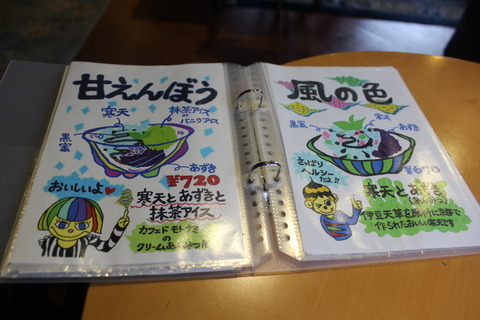 甘えんぼう
寒天
抹茶アイス
or
バニラアイス
黒蜜
あずき
おいしいよ
¥720
寒天とあずきと
抹茶アイス
カフェド モトナミの
風の色
寒天
黒蜜
あずき
さっぱり
ヘルシー
だよ!!
¥670
寒天とあずき
伊豆天草を
作られたおいしい寒天です